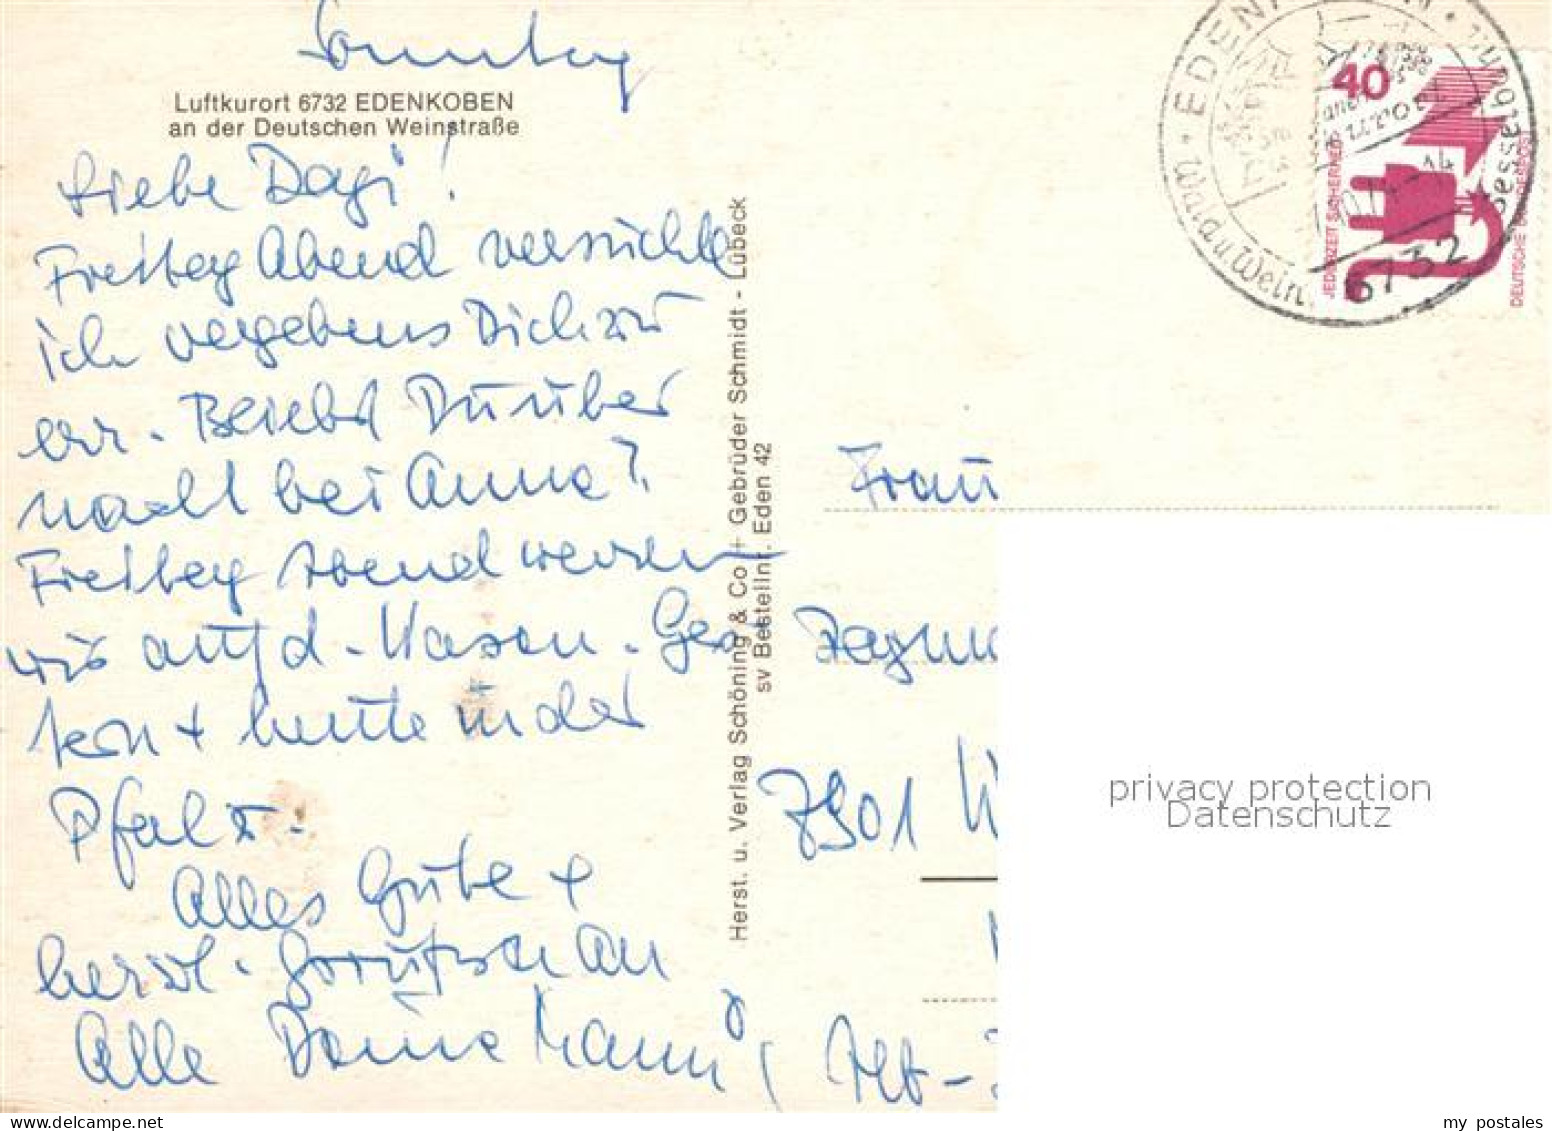 Sonntag
Luftkurort 6732 EDENKOBEN
an der Deutschen Weinstraße
Liebe Dagi!
Freitag Abend versuchte
ich vergebens Dich zu
err. Bleibst Du über
nacht bei Anne?
Freitag Abend werden
wir auf d. Wasen. Ges
tern + heute in der
Pfalz.
Alles Gute +
herzl. Grüße an
Alle Deine Mami
Herst. u. Verlag Schöning & Co + Gebrüder Schmidt - Lübeck
sv Bestellnr. Eden 42
40
JEDERZEIT SICHERHEIT
DEUTSCHE BUNDESPOST
6732
Frau
7901
privacy protection
Datenschutz
my postales